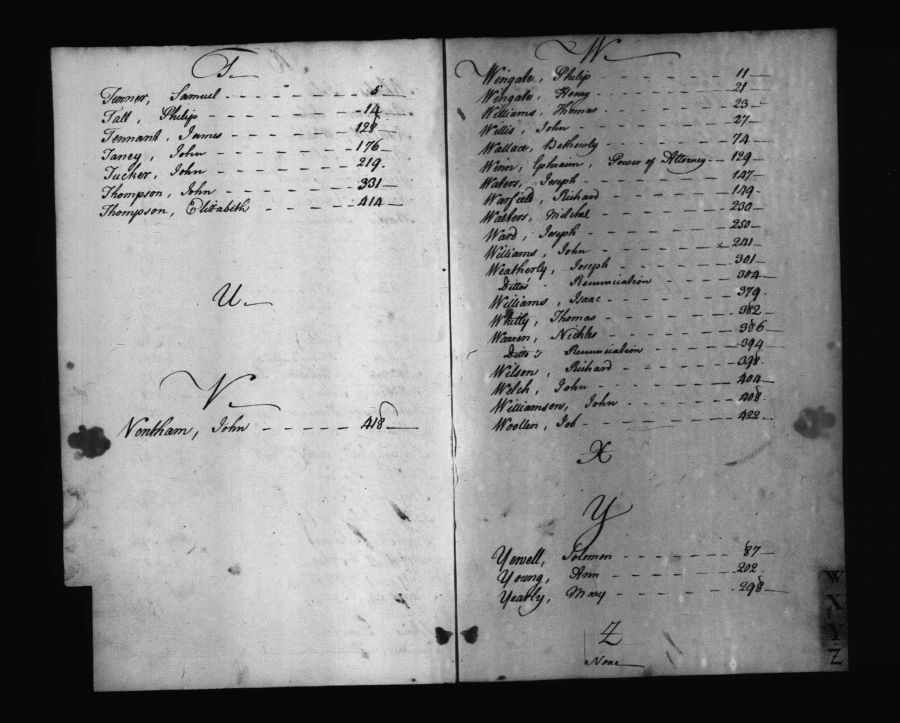 T
Turner, Samuel 5
Tall, Philip 14
Tennant, James 128
Taney, John 176
Tucker, John 219
Thompson, John 331
Thompson, Elizabeth 414
U
V
Ventham, John 418
W
Wingate, Philip 11
Wingate, Henry 21
Williams, Thomas 23
Willis, John 27
Wallace, 74
Winn, Ephraim, Power of Attorney 129
Waters, Joseph 147
Warfield, Richard 149
Walters, 230
Ward, Joseph 250
Williams, John 241
Weatherly, Joseph 301
Ditto's Renunciation 304
Williams, Isaac 379
Whitly, Thomas 382
Warren, 386
Ditto's Renunciation 394
Wilson, Richard 398
Welch, John 404
Williamson, John 408
Woollen, Job 422
X
Y
Yewell, Solomon 87
Young, Ann 202
Yearly, Mary 298
Z
None
W
X
Y
Z